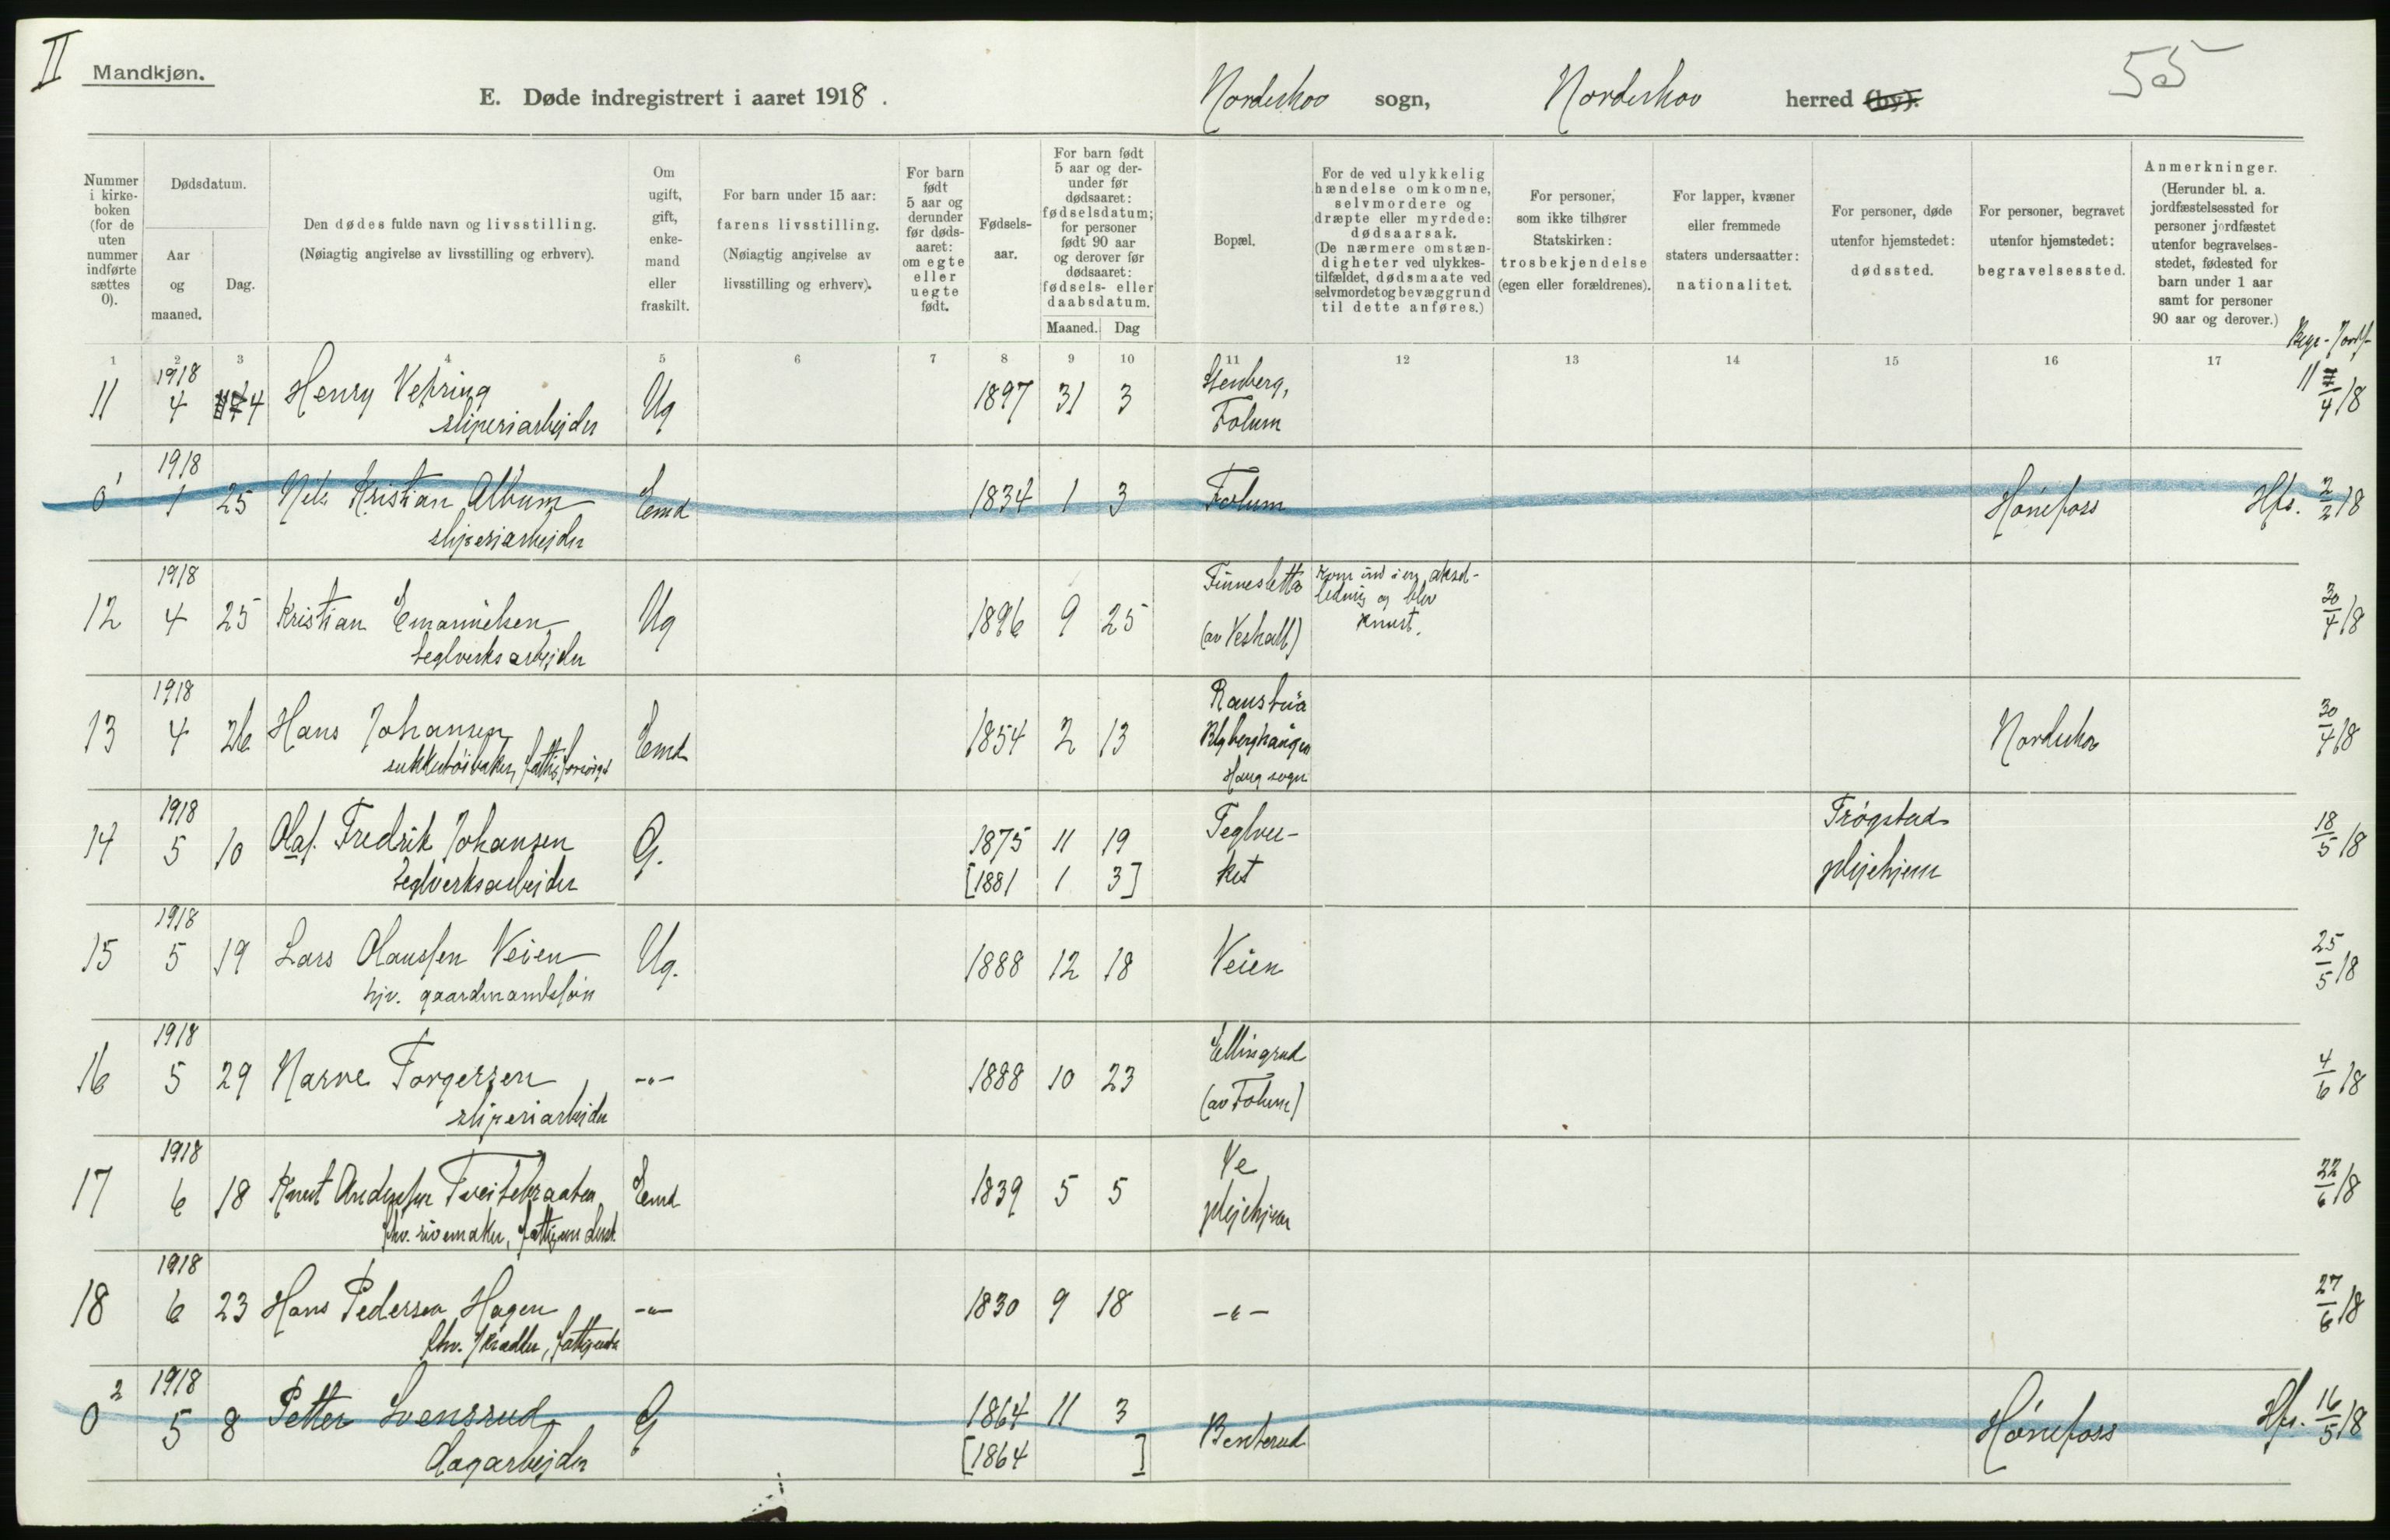 II
Mandkjøn.
E. Døde indregistrert i aaret 1918.
Norderhov sogn, Norderhov herred (by).
55
Nummer i kirke-boken (for de uten nummer indførte sættes 0).
Dødsdatum.
Aar og maaned.
Dag.
Den dødes fulde navn og livsstilling.
(Nøiagtig angivelse av livsstilling og erhverv).
Om ugift, gift, enke-mand eller fraskilt.
For barn under 15 aar: farens livsstilling.
(Nøiagtig angivelse av livsstilling og erhverv).
For barn født 5 aar og derunder før døds-aaret: om egte eller uegte født.
Fødsels-aar.
For barn født 5 aar og der-under før dødsaaret: fødselsdatum; for personer født 90 aar og derover før dødsaaret: fødsels- eller daabsdatum.
Maaned. Dag
Bopæl.
For de ved ulykkelig hændelse omkomne, selvmordere og dræpte eller myrdede: dødsaarsak.
(De nærmere omstæn-digheter ved ulykkes-tilfældet, dødsmaate ved selvmordet og bevæggrund til dette anføres.)
For personer, som ikke tilhører Statskirken: trosbekjendelse (egen eller forældrenes).
For lapper, kvæner eller fremmede staters undersaatter: nationalitet.
For personer, døde utenfor hjemstedet: dødssted.
For personer, begravet utenfor hjemstedet: begravelsessted.
Anmerkninger.
(Herunder bl. a. jordfæstelsessted for personer jordfæstet utenfor begravelses-stedet, fødested for barn under 1 aar samt for personer 90 aar og derover.)
Begr.-Jordf.
1 2 3 4 5 6 7 8 9 10 11 12 13 14 15 16 17
11 1918 4 4 Henry Vehring Ug 1897 31 3 Stenberg, 11/4 18
sliperiarbejder Folum
0 1 1918 1 25 Nils Kristian Album Emd 1834 1 3 Folum Hønefoss Hfs. 2/2 18
sliperiarbejder
12 1918 4 25 Kristian Emanuelsen Ug 1896 9 25 Finnesletta kom ind i en aksel-ledning og blev knust. 30/4 18
teglverksarbejder (av Veshall)
13 1918 4 26 Hans Johansen Emd 1854 2 13 Ranstua Norderhov 30/4 18
sukkertøibaker, fattigforsørget Haug sogn
14 1918 5 10 Olaf Fredrik Johansen G. 1875 11 19 Teglver-ket Trøgstad plejehjem 18/5 18
teglverksarbejder [1881 1 3]
15 1918 5 19 Lars Olaussen Veien Ug. 1888 12 18 Veien 25/5 18
hjv. gaardmandssøn
16 1918 5 29 Narve Torgersen -"- 1888 10 23 Ellingrud 4/6 18
sliperiarbejder (av Folum)
17 1918 6 18 Knut Andersen Tveitebraaten Emd 1839 5 5 Ve plejehjem 22/6 18
fhv. rivemaker, fattigunderst.
18 1918 6 23 Hans Pedersen Hagen -"- 1830 9 18 -"- 27/6 18
fhv. skrædder, fattigunderst.
0 2 1918 5 8 Petter Svensrud G 1864 11 3 Benterud Hønefoss Hfs. 16/5 18
dagarbejder [1864 ]